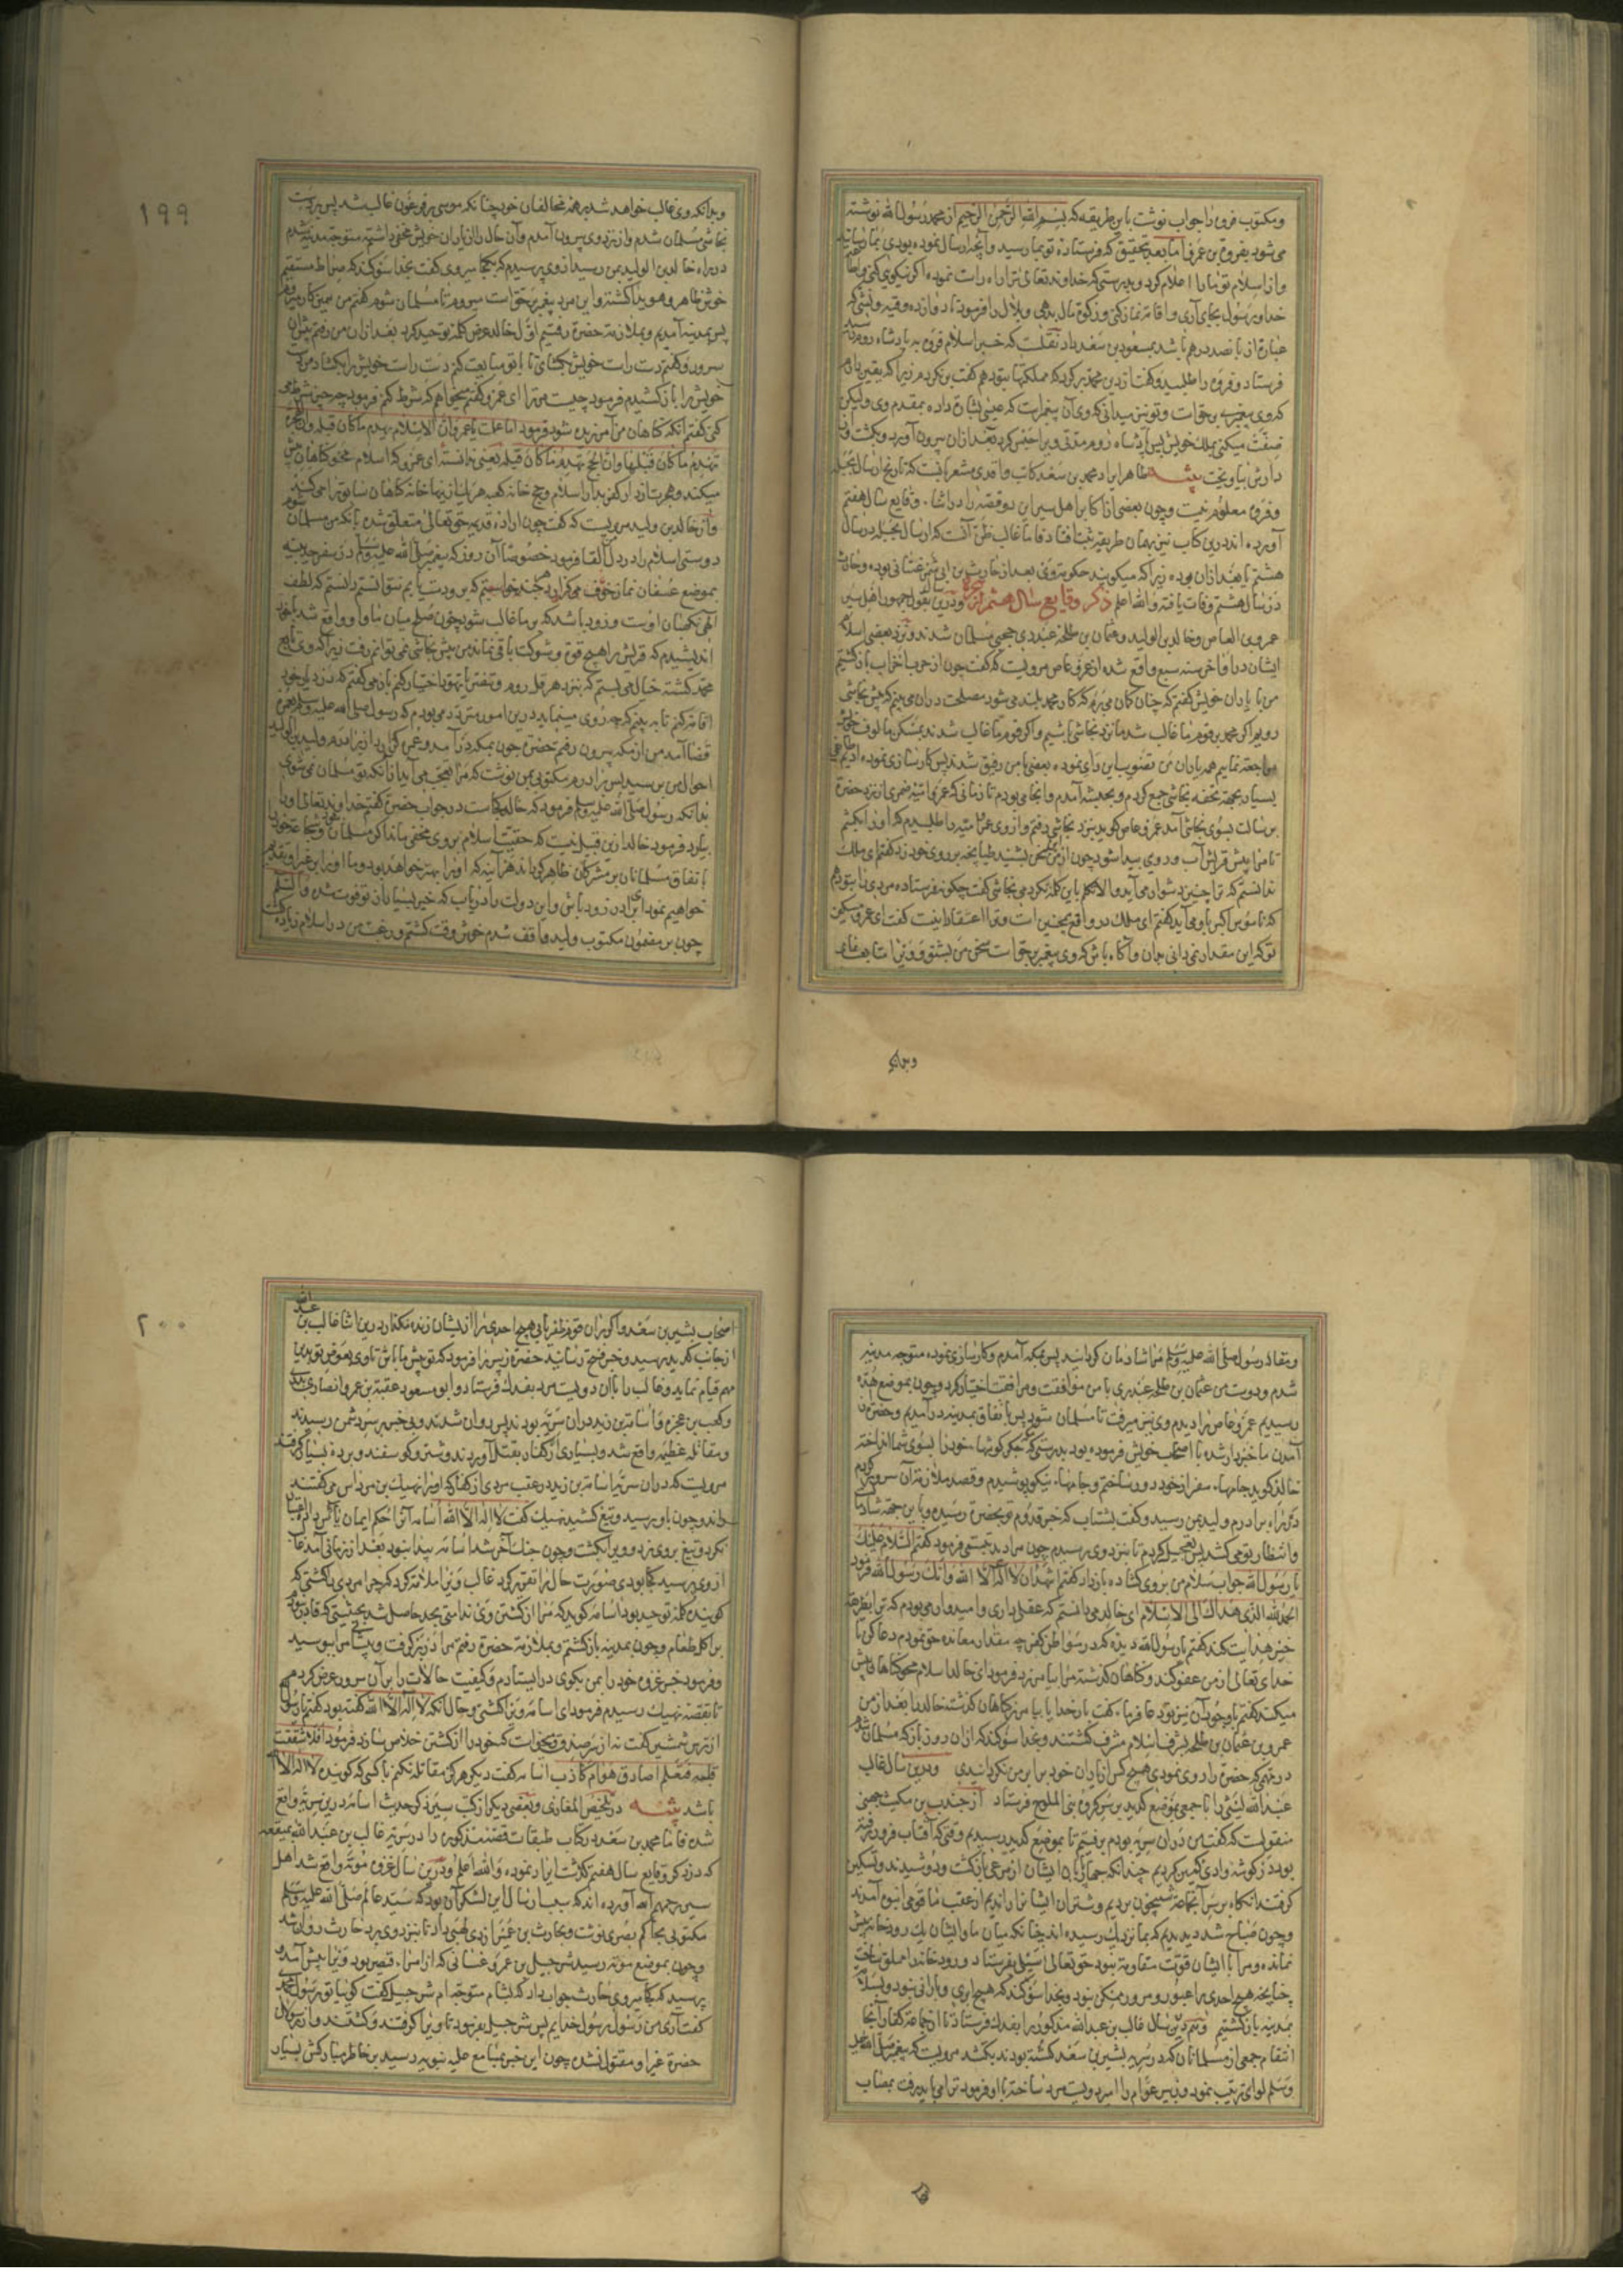 ومکتوب فروه را جواب نوشت باین طریقه که بسم الله الرحمن الرحیم از محمد رسول الله نوشته
می شود بفروة بن عمرو اما بعد بتحقیق که فرستاده تو بما رسید و آنچه ارسال نموده بودی بما رسانید
واز اسلام تو ما را اعلام کرد و بدرستی که خداوند تعالی ترا راه راست نموده اگر نیکویی کنی و اطاعت
خدا و رسول بجای آری و اقامت نماز کنی و زکوة مال بدهی و بلال را فرمود تا دوازده وقیه ونشی که
عبارة از پانصد درهم باشد بمسعود بن سعد داد نقلست که خبر اسلام فروه به پادشاه روم رسید
فرستاد و فروه را طلبید و گفت از دین محمد برگرد که مملکتها بتو دهم گفت بر نگردم زیرا که یقین دانم
که وی پیغمبر بر حق است و تو نیز میدانی که وی آن پیغمبر است که عیسی بشارة داده بمقدم وی ولیکن
ضنت میکنی بملک خویش پس پادشاه روم مدتی ویرا حبس کرد بعد از آن بیرون آورد و بکشت و
دارش بیاویخت تنبیه ظاهر ایراد محمد بن سعد کاتب واقدی مشعر باینست که تاریخ ارسال
وفروه معلوم نیست و چون بعضی از اکابر اهل سیر این دو قصه را در اثناء وقایع سال هفتم
آورده اند درین کتاب نیز بهمان طریقه ثبت افتاد فاما غالب ظن آنست که ارسال بجبله در سال
هشتم یا بعد از آن بوده زیرا که میگویند حکومت وی بعد از حارث بن ابی شمر غسانی بوده و حارث
در سال هشتم وفات یافته والله اعلم ذکر وقایع سال هشتم از هجرة ودرین بقول جمهور اهل سیر
عمرو بن العاص و خالد بن الولید و عثمان بن طلحه عبدری حجبی مسلمان شدند و نزد بعضی اسلام
ایشان در اواخر سنه سبع واقع شده از عمرو عاص مرویست که گفت چون از حرب احزاب بازگشتیم
من با یاران خویش گفتم که چنان گمان می برم که کار محمد بلند می شود مصلحت در آن می بینم که پیش نجاشی
رویم اگر محمد بر قوم ما غالب شد ما نزد نجاشی باشیم و اگر قوم ما غالب شدند بمسکن مالوف خویش
مراجعة نمایم همه یاران من تصویب این رای نموده بعضی با من رفیق شدند پس کارسازی نموده ادیم
بسیار بجهة تحفه نجاشی جمع کردم و بحبشه آمدم و آنجا می بودم تا زمانی که عمرو امیه ضمری از نزد حضرة
برسالت بسوی نجاشی آمد عمرو عاص گوید بنزد نجاشی رفتم و از وی عمرو امیه را طلبیدم که او را بکشم
تا مرا پیش قریش آب و روی پیدا شود چون از من این سخن بشنید طپانچه بر روی خود زد گفتم ای ملک
ندانستم که ترا چنین دشوار می آید والا تکلم باین کلمه نکردمی نجاشی گفت چگونه فرستاده مردی را بتو دهم
که ناموس اکبر باو می آید گفتم ای ملک در واقع چنین است و ترا اعتقاد اینست گفت ای عمرو مسکین
تو که این مقدار نمی دانی بدان و آگاه باش که وی پیغمبر بر حق است سخن من بشنو و ویرا متابعت
وبدانکه
وبدانکه وی غالب خواهد شد بر همه مخالفان خود چنانکه موسی بر فرعون غالب شد پس بر دست
نجاشی مسلمان شدم و از نزد وی بیرون آمدم و آن حال را از یاران خویش مخفی داشته متوجه مدینه شدم
در راه خالد بن الولید بمن رسید از وی پرسیدم که بکجا میروی گفت بخدا سوگند که صراط مستقیم
خوش ظاهر و هویدا گشته و این مرد پیغمبر بر حق است میروم تا مسلمان شوم گفتم من بهمین کار میروم
پس بمدینه آمدیم و بملازمت حضرة رفتیم اول خالد عرض کلمه توحید کرد بعد از آن من رفتم پیش آن
سرور و گفتم دست راست خویش بگشای تا با تو مبایعت کنم دست راست خویش را بگشاد من دست
خویش را باز کشیدم فرمود چیست مر ترا ای عمرو گفتم میخواهم که شرط کنم فرمود چه چیز شرط
کنی گفتم آنکه گناهان من آمرزیده شود فرمود اما علمت یا عمرو ان الاسلام یهدم ما کان قبله وان الهجرة
تهدم ما کان قبلها وان الحج یهدم ما کان قبله یعنی ندانسته ای عمرو که اسلام محو گناهان پیش
میکند و هجرت از دار کفر بدار اسلام و حج خانه کعبه هر یک از ینها خانه گناهان سابق را می کنند
واز خالد بن ولید مرویست که گفت چون اراده قدیمه حق تعالی متعلق شده بانکه من مسلمان
دوستی اسلام را در دل القا فرمود خصوصا آن روز که پیغمبر صلی الله علیه وسلم در سفر حدیبیه
بموضع عسفان نماز خوف می گزارد هر چند خواستم که برو دست یابم نتوانستم دانستم که لطف
الهی نگهبان اوست و زود باشد که بر ما غالب شود چون صلح میان ما و او واقع شد با خود
اندیشیدم که قریش را هیچ قوة و شوکت باقی نماند من پیش نجاشی نمی توانم رفت زیرا که وی تابع
محمد گشته خیال می بستم که بنزد هرقل روم و تنصر یا یهود اختیار کنم باز می گفتم که در دیار خود
اقامت کنم تا به بینم که چه روی مینماید درین امور متردد می بودم که رسول صلی الله علیه وسلم بعمرة
قضا آمد من از مکه بیرون رفتم حضرة چون بمکه در آمد و عمره گزارد از برادرم ولید بن الولید
احوال من پرسید پس برادرم مکتوبی بمن نوشت که مرا عجب می آید از آنکه تو مسلمان نمی شوی
بدانکه رسول صلی الله علیه وسلم فرمود که خالد کجاست در جواب حضرة گفتم خداوند تعالی او را
بیاورد فرمود خالد ازین قبیل نیست که حقیت اسلام بر وی مخفی ماند اگر مسلمان شود و شجاعة خود را
باتفاق مسلمانان بر مشرکان ظاهر گرداند هر آینه که او را بهتر خواهد بود و ما او را بر غیر او تقدیم
خواهیم نمود ای برادر زود باش و این دولت را دریاب که خیر بسیار از تو فوت شده والسلم
چون بر مضمون مکتوب ولید واقف شدم خوش وقت گشتم و رغبت من در اسلام زیاده گشت
۱۹۹
ومقال رسول صلی الله علیه وسلم مرا شادمان گردانید پس بمکه آمدم و کارسازی نموده متوجه مدینه
شدم و دوست من عثمان بن طلحه عبدری با من موافقت و مرافقت اختیار کرد و چون بموضع هده
رسیدیم عمرو عاص را دیدم وی نیز میرفت تا مسلمان شود پس باتفاق بمدینه در آمدیم و حضرة از
آمدن ما خبردار شده با اصحاب خویش فرموده بود بدرستی که مکه جگر گوشهاء خود را بسوی شما انداخته
خالد گوید جامهاء سفر از خود دور ساختم و جامهاء نیکو پوشیدم و قصد ملازمة آن سرور کردم
در راه برادرم ولید بمن رسید و گفت بشتاب که خبر قدوم تو بحضرة رسیده و باین جهة شادمان
وانتظار تو می کشد پس تعجیل کردم تا بنزد وی رسیدم چون مرا دید تبسمی فرمود گفتم السلام علیک
یا رسول الله جواب سلام من بروی گشاده باز داد گفتم اشهد ان لا اله الا الله وانک رسول الله فرمود
الحمد لله الذی هداک الی الاسلام ای خالد می دانستم که عقلی داری و امیدوار می بودم که ترا بطریقه
خیر هدایت کند گفتم یا رسول الله دیده که در مواطن کفر چه مقدار معانده حق نمودم دعا کن تا
خدای تعالی از من عفو کند و گناهان گذشته مرا بیامرزد فرمود ای خالد اسلام محو گناهان پیش
میکند گفتم با وجود آن نیز تو دعا فرماء گفت بار خدایا بیامرز گناهان گذشته خالد را بعد از من
عمرو بن عثمان بن طلحه بشرف اسلام مشرف گشتند و بخدا سوگند که از آن روز باز که مسلمان شدم
در مهمی که حضرة را روی نمودی هیچکس از یاران خود بر ابر من نگردانیدی ودرین سال غالب
عبد الله لیثی را با جمعی بموضع کدید بر سر گروه بنی الملوح فرستاد از جندب بن مکیث جهنی
منقولست که گفت من در آن سریه بودم برفتیم تا بموضع کدید رسیدیم وقتی که آفتاب فرو رفته
بود در گوشه وادی کمین کردیم چندانکه چهارپایان ایشان از مرعی بازگشت و دوشیدند و تسکین
گرفتند آنگاه بر سر آنجماعة شبیخون بردیم و شتران ایشانرا راندیم از عقب ما قومی انبوه آمدند
وچون صباح شد دیدیم که بما نزدیک رسیده اند چنانکه میان ما و ایشان یک رودخانه بیش
نمانده و مرا با ایشان قوت مقاومة نبود حق تعالی سیلی بفرستاد و رودخانه را مملو ساخت
چنانچه هیچ احدی را عبور و مرور ممکن نبود و بخدا سوگند که هیچ ابری و بارانی نبود و بسلامت
بمدینه بازگشتیم وهم درین سال غالب بن عبد الله مذکور را بفدک فرستاد تا از جماعة کفار آنجا
انتقام جمعی از مسلمانان که در سریه بشیر بن سعد کشته بودند بکشد مرویست که پیغمبر صلی الله علیه
وسلم لوائی ترتیب نمود و زبیر عوام را امیر دویست مرد ساخته با او فرمود ترا می باید رفت بمصاب
اصحاب بشیر بن سعد و اگر بر آن قوم ظفر یابی هیچ احدی را از ایشان زنده نگذار درین اثنا غالب بن عبد الله
از جانب کدید برسید و خبر فتح رسانید حضرة زبیر را فرمود که تو پیش ما باش تا وی بعوض تو بدین
مهم قیام نماید و غالب را با آن دویست مرد بفدک فرستاد و ابو مسعود عقبة بن عمرو انصاری بدری
وکعب بن عجره و اسامة بن زید در آن سریه بودند پس روان شدند و بی خبر بر سر دشمن رسیدند
ومقاتله عظیم واقع شد و بسیاری از کفار بقتل آوردند و شتر و گوسفند و برده بسیار گرفتند
مرویست که در آن سریه اسامة بن زید در عقب مردی از کفار که او را نهیک بن مرداس می گفتند
براند و چون باو رسید و تیغ کشید نهیک گفت لا اله الا الله اسامه آنرا حکم ایمان یأس داد التفات
نکرد و تیغ بر وی زد و ویرا بکشت و چون جنگ آخر شد اسامه پیدا نبود بعد از زمانی آمد غالب
از وی پرسید کجا بودی صورت حال را تقریر کرد غالب ویرا ملامة کرد که چرا مردی را کشتی که
گوینده کلمه توحید بود اسامه گوید که مرا از کشتن وی ندامتی بحد حاصل شد بحیثیتی که قادر نبودم
بر اکل طعام و چون بمدینه بازگشتم و بملازمة حضرة رفتم مرا در بر گرفت و پیشانی مرا ببوسید
وفرمود خبر غزوه خود را بمن بگوی در ایستادم و کیفیت حالات را بر آن سرور عرض کردم
تا بقصه نهیک رسیدم فرمود ای اسامه ویرا کشتی و حال آنکه لا اله الا الله گفته بود گفتم یا رسول الله
از ترس شمشیر گفت نه از سر صدق و میخواست که خود را از کشتن خلاص سازد فرمود افلا شققت
قلبه فتعلم اصادق هو ام کاذب اسامه گفت دیگر هرگز مقاتله نکنم با کسی که گوینده لا اله الا الله
باشد تنبیه در ملخص المغازی و بعضی دیگر از کتب سیر ذکر حدیث اسامه درین سریه واقع
شده فاما محمد بن سعد در کتاب طبقات قصه مذکوره را در سریه غالب بن عبد الله بمیفعه
که در ذکر وقایع سال هفتم گذشت ایراد نموده والله اعلم ودرین سال غزوه موته واقع شد اهل
سیر رحمهم الله آورده اند که سبب ارسال این لشکر آن بود که سید عالم صلی الله علیه وسلم
مکتوبی بحاکم بصری نوشت و بحارث بن عمیر ازدی لهبی داد تا بنزد وی برد حارث روان شد
وچون بموضع موته رسید شرحبیل بن عمرو غسانی که از امراء قیصر بود ویرا پیش آمد
پرسید که بکجا میروی حارث جواب داد که بشام متوجه ام شرحبیل گفت گویا تو رسول محمدی
گفت آری من رسول رسول خدایم پس شرحبیل بفرمود تا ویرا گرفتند و کشتند و از رسولان
حضرة غیر او مقتول نشده چون این خبر بمسامع علیه نبویه رسید بر خاطر مبارکش بسیار
۲۰۰